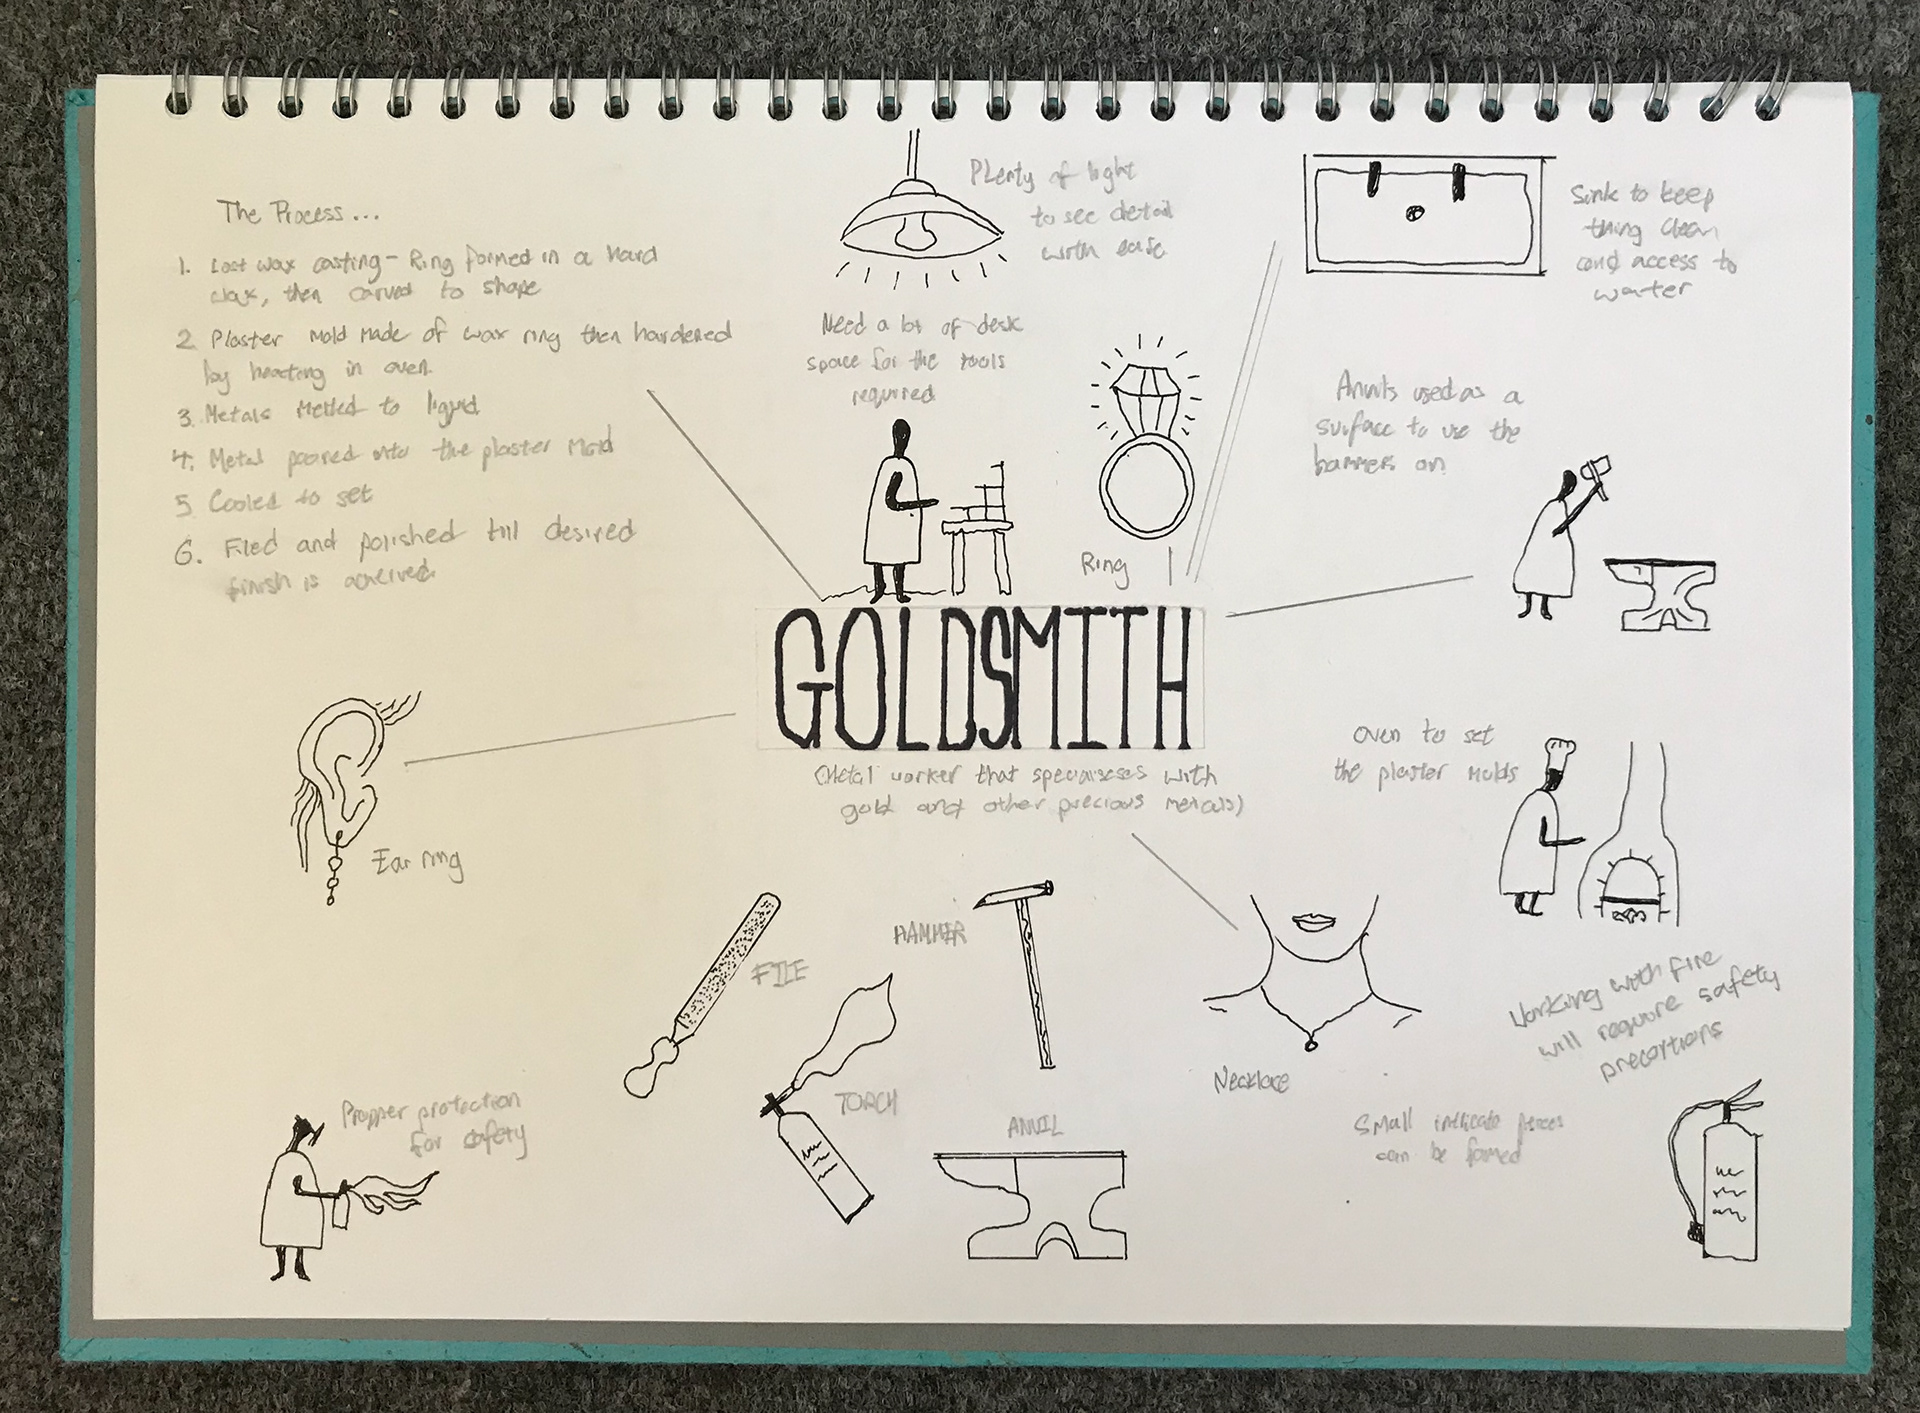 The Process...
1. Lost wax casting - Ring formed in a hard
wax, then carved to shape
2. Plaster mold made of wax ring then hardened
by heating in oven.
3. Metals melted to liquid
4. Metal poored into the plaster mold
5. Cooled to set
6. Filed and polished till desired
finish is acheived.
Plenty of light
to see detail
with ease
Sink to keep
thing clean
and access to
water
Need a lot of desk
space for the tools
required
Anvils used as a
surface to use the
hammers on
Ring
GOLDSMITH
(Metal worker that speciaiseses with
gold and other precious metals)
Oven to set
the plaster molds
Ear ring
HAMMER
FILE
Working with fire
will require safety
precortions
Necklace
TORCH
Propper protection
for safety
ANVIL
Small intricate pieces
can be formed